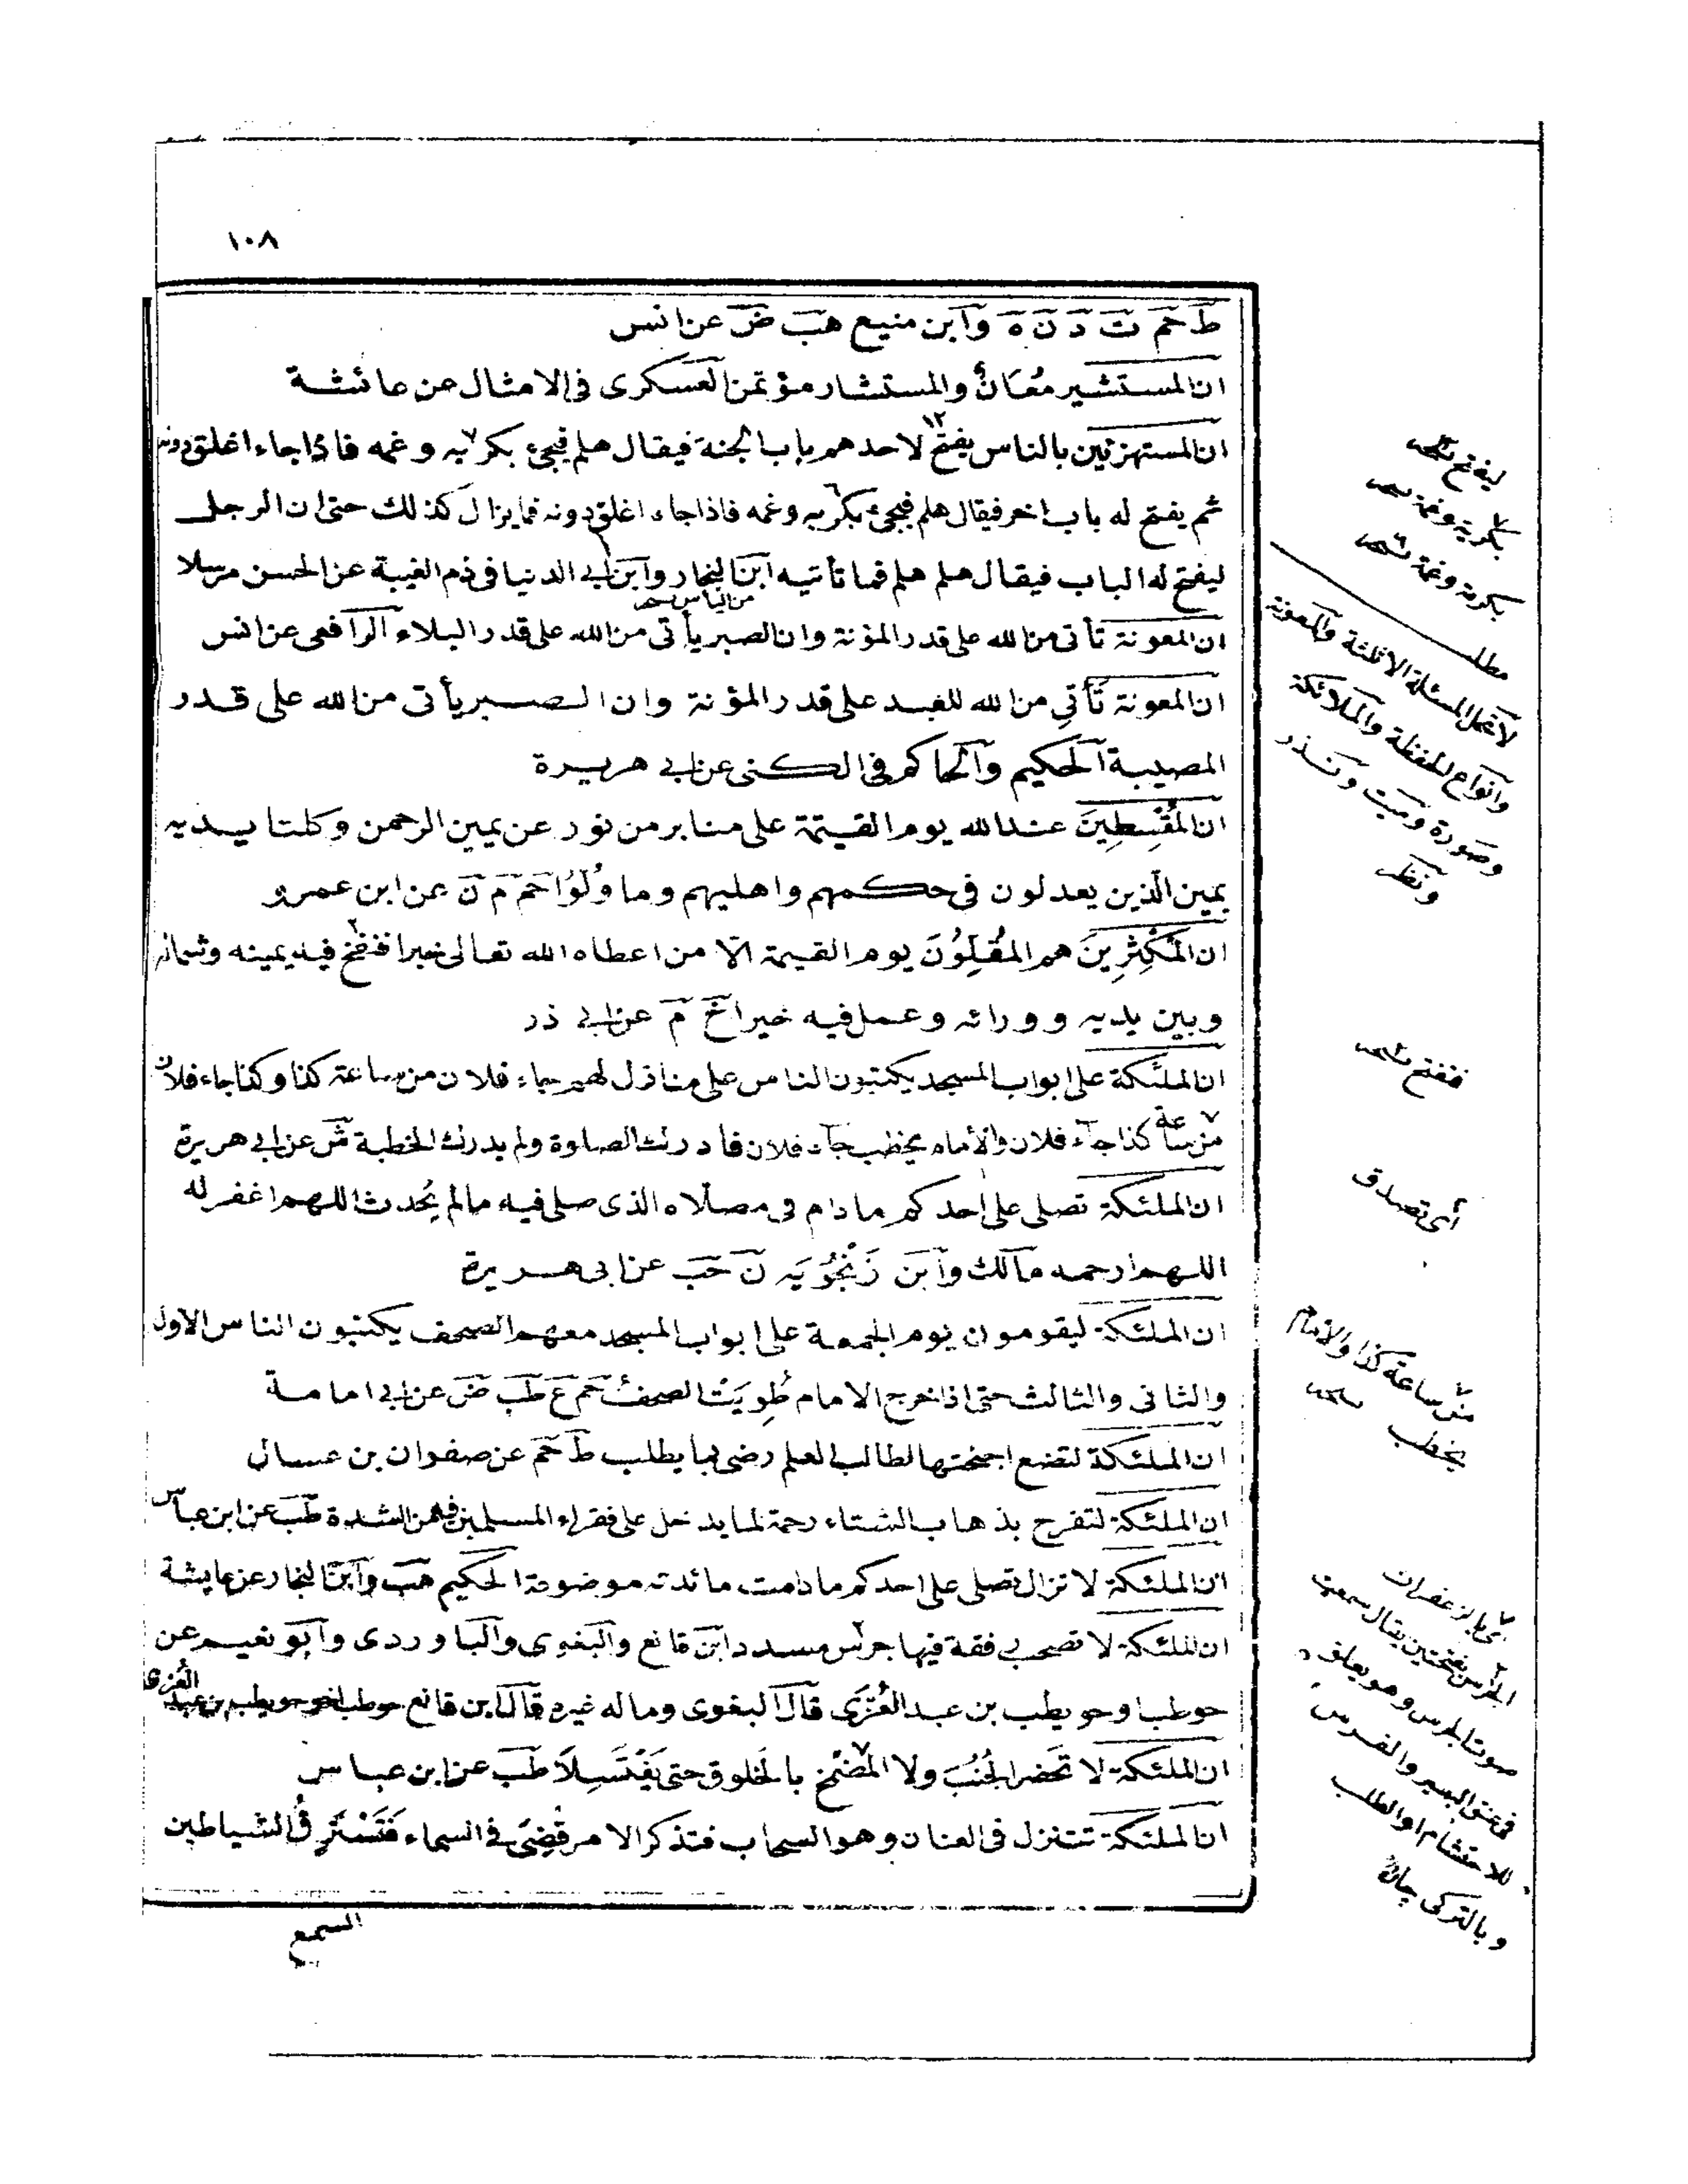 ١٠٨
ط حم ت د ن ه وابن منيع هب ض عن انس
ان المستشير مُعَانٌ والمستشار مؤتمن العسكرى فى الامثال عن عائشة
ان المستهزئين بالناس يفتح لاحدهم باب الجنة فيقال هلم فيجئ بكربه وغمه فاذا جاء اغلق دونه
ثم يفتح له باب اخر فيقال هلم فيجئ بكربه وغمه فاذا جاء اغلق دونه فما يزال كذلك حتى ان الرجل
ليفتح له الباب فيقال هلم هلم فما تأتيه ابن النجار وابن ابى الدنيا فى ذم الغيبة عن الحسن مرسلا
من الياس
ان المعونة تأتى من الله على قدر المؤنة وان الصبر يأتى من الله على قدر البلاء الرافعى عن انس
ان المعونة تَأتِى من الله للعبد على قدر المؤنة وان الصبر يأتى من الله على قدر
المصيبة الحكيم والحاكم فى الكنى عن ابى هريرة
ان المُقْسِطِينَ عند الله يوم القيٰمة على منابر من نور عن يمين الرحمن وكلتا يديه
يمين الّذين يعدلون فى حكمهم واهليهم وما وُلُوا حم م ن عن ابن عمرو
ان المُكْثِرِينَ هم المُقِلّونَ يوم القيمة الّا من اعطاه الله تعالى خيرا فنفخ فيه يمينه وشماله
وبين يديه وورائه وعمل فيه خيرا خ م عن ابى ذر
ان الملئكة على ابواب المسجد يكتبون الناس على منازلهم جاء فلان من ساعة كذا وكذا جاء فلان
من ساعة كذا جاء فلان والأمام يخطب جاء فلان فادرك الصلوة ولم يدرك الخطبة ش عن ابى هريرة
ان الملئكة تصلى على احدكم مادام فى مصلّاه الذى صلى فيه مالم يُحدث اللهم اغفر له
اللهم ارحمه مالك وابن زَنْجُوُيَه ن حب عن ابى هريرة
ان الملئكة ليقومون يوم الجمعة على ابواب المسجد معهم الصحف يكتبون الناس الاول
والثانى والثالث حتى اذا خرج الامام طُوِيَتْ الصحفُ حم ع طب ض عن ابى امامة
ان الملئكة لتضع اجنحتها لطالب العلم رضى بما يطلب ط حم عن صفوان بن عسال
ان الملئكة لتفرح بذهاب الشتاء رحمة لما يدخل على فقراء المسلمين فيه من الشدة طب عن ابن عباس
ان الملئكة لا تزال تصلى على احدكم مادامت مائدته موضوعة الحكيم هب وابن النجار عن عايشة
ان الملئكة لا تصحب رفقة فيها جرس مسدد وابن قانع والبغوى والباوردى وابو نعيم عن
حوطب او حويطب بن عبد العُزّى قال البغوى وماله غيره قال ابن قانع حوطب اخو حويطب بن عبد العُزى
ان الملئكة لا تَحضر الجُنُبَ ولا المُضَمّخ بالخَلوق حتى يَغْتَسِلاَ طب عن ابن عباس
ان الملئكة تتنزل فى العنان وهو السحاب فتذكر الامر قُضِىَ فى السماء فَتَسْتَرِقُ الشياطين
السمع
ليفتح نسخه
بكربه وغمه نسخه
بكربه وغمه نسخه
مطلب
لا تحل المسئلة الا لثلثة والمعونة
وانواع الحفظة والملائكة
وصورة وميت ونذر
ونظر
ففتح نسخه
أى تصدق
من ساعة كذا والامام
يخطب نسخه
أى بالزعفران
الجرس بفتحتين يقال سمعت
صوت الجرس وهو يعلق
فى عنق البعير والفرس
للاحتشام او الطلب
وبالتركى چان